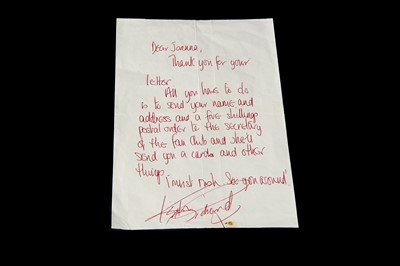 Dear Joanna,
Thank you for your
letter
All you have to do
is to send your name and
address and a five shillings
postal order to the secretary
of the fan club and she'll
send you a card and other
things
I must dash. See you around
Keith Richard